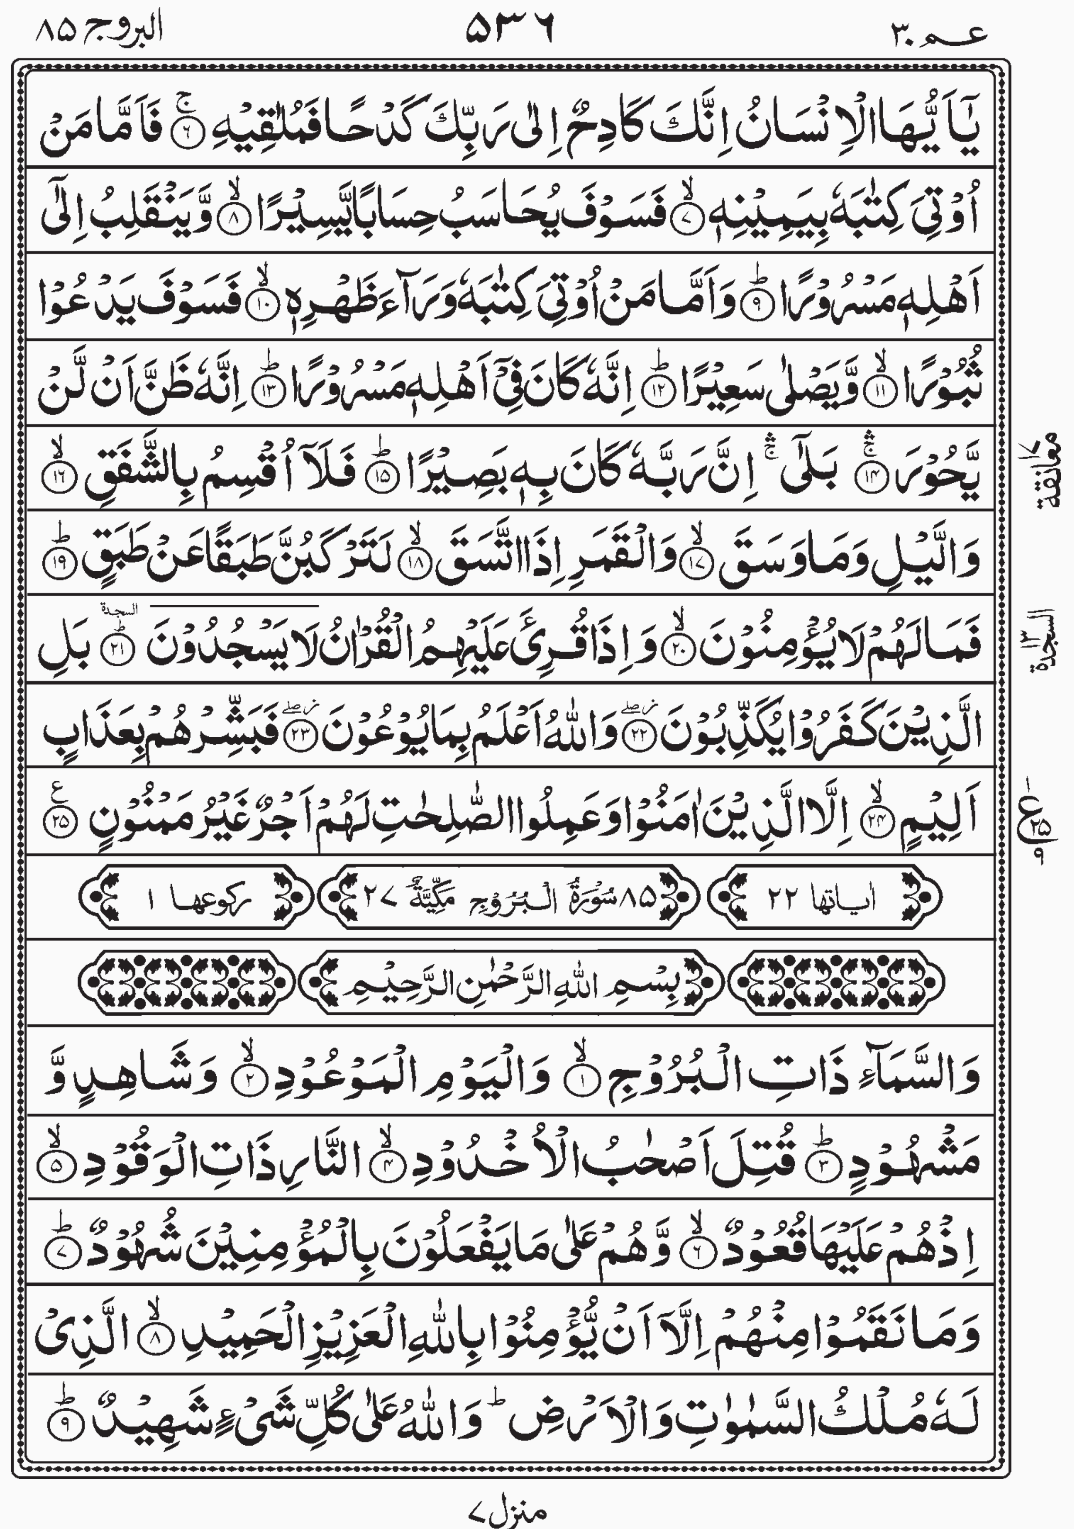 عم ۳۰
۵۳۶
البروج ۸۵
يٰۤاَيُّهَا الْاِنْسَانُ اِنَّكَ كَادِحٌ اِلٰى رَبِّكَ كَدْحًا فَمُلٰقِيْهِ ۚ‏﴿۶﴾ فَاَمَّا مَنْ
اُوْتِىَ كِتٰبَهٗ بِيَمِيْنِهٖ ۙ‏﴿۷﴾ فَسَوْفَ يُحَاسَبُ حِسَابًا يَّسِيْرًا ۙ‏﴿۸﴾ وَّيَنْقَلِبُ اِلٰٓى
اَهْلِهٖ مَسْرُوْرًا ؕ‏﴿۹﴾ وَاَمَّا مَنْ اُوْتِىَ كِتٰبَهٗ وَرَآءَ ظَهْرِهٖ ۙ‏﴿۱۰﴾ فَسَوْفَ يَدْعُوْا
ثُبُوْرًا ۙ‏﴿۱۱﴾ وَّيَصْلٰى سَعِيْرًا ؕ‏﴿۱۲﴾ اِنَّهٗ كَانَ فِىْۤ اَهْلِهٖ مَسْرُوْرًا ؕ‏﴿۱۳﴾ اِنَّهٗ ظَنَّ اَنْ لَّنْ
يَّحُوْرَ ۛۚ‏﴿۱۴﴾ بَلٰٓى ۛۚ اِنَّ رَبَّهٗ كَانَ بِهٖ بَصِيْرًا ؕ‏﴿۱۵﴾ فَلَاۤ اُقْسِمُ بِالشَّفَقِ ۙ‏﴿۱۶﴾
وَالَّيْلِ وَمَا وَسَقَ ۙ‏﴿۱۷﴾ وَالْقَمَرِ اِذَا اتَّسَقَ ۙ‏﴿۱۸﴾ لَتَرْكَبُنَّ طَبَقًا عَنْ طَبَقٍ ؕ‏﴿۱۹﴾
فَمَا لَهُمْ لَا يُؤْمِنُوْنَ ۙ‏﴿۲۰﴾ وَاِذَا قُرِئَ عَلَيْهِمُ الْقُرْاٰنُ لَا يَسْجُدُوْنَ السجدة ؕ‏﴿۲۱﴾ بَلِ
الَّذِيْنَ كَفَرُوْا يُكَذِّبُوْنَ ۖز‏﴿۲۲﴾ وَاللّٰهُ اَعْلَمُ بِمَا يُوْعُوْنَ ۖز‏﴿۲۳﴾ فَبَشِّرْهُمْ بِعَذَابٍ
اَلِيْمٍ ۙ‏﴿۲۴﴾ اِلَّا الَّذِيْنَ اٰمَنُوْا وَعَمِلُوا الصّٰلِحٰتِ لَهُمْ اَجْرٌ غَيْرُ مَمْنُوْنٍ ع‏﴿۲۵﴾
اٰياتها ۲۲ ۸۵ سُوْرَةُ الْبُرُوْجِ مَكِّيَّةٌ ۲۷ ركوعها ۱
بِسْمِ اللّٰهِ الرَّحْمٰنِ الرَّحِيْمِ
وَالسَّمَآءِ ذَاتِ الْبُرُوْجِ ۙ‏﴿۱﴾ وَالْيَوْمِ الْمَوْعُوْدِ ۙ‏﴿۲﴾ وَشَاهِدٍ وَّ
مَشْهُوْدٍ ؕ‏﴿۳﴾ قُتِلَ اَصْحٰبُ الْاُخْدُوْدِ ۙ‏﴿۴﴾ النَّارِ ذَاتِ الْوَقُوْدِ ۙ‏﴿۵﴾
اِذْ هُمْ عَلَيْهَا قُعُوْدٌ ۙ‏﴿۶﴾ وَّهُمْ عَلٰى مَا يَفْعَلُوْنَ بِالْمُؤْمِنِيْنَ شُهُوْدٌ ؕ‏﴿۷﴾
وَمَا نَقَمُوْا مِنْهُمْ اِلَّاۤ اَنْ يُّؤْمِنُوْا بِاللّٰهِ الْعَزِيْزِ الْحَمِيْدِ ۙ‏﴿۸﴾ الَّذِىْ
لَهٗ مُلْكُ السَّمٰوٰتِ وَالْاَرْضِ ؕ وَاللّٰهُ عَلٰى كُلِّ شَىْءٍ شَهِيْدٌ ؕ‏﴿۹﴾
معانقة ۱۷
السجدة ۱۳
ع ۲۵ ۹
منزل ۷